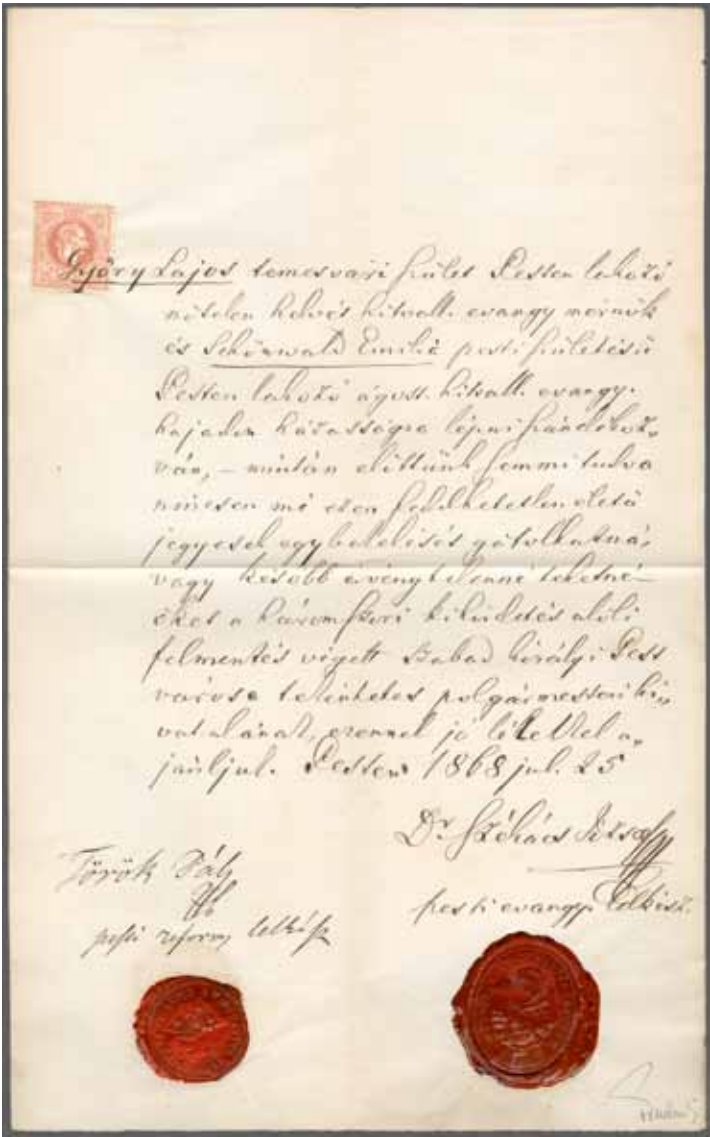 Győry Lajos temesvári szület. Pesten lakozó
nőtelen helvét hitvall. evangy mérnök
és Schönwald Emilié pesti születésű
Pesten lakozó ágost. hitvall. evangy.
hajadon házasságra lépni szándékoz„
ván, – miután előttünk semmi tudva
nincsen mi ezen feddhetetlen életű
jegyesek egybekelését gátolhatná,
vagy később érvénytelenné tehetné –
őket a háromszori kihirdetés alóli
felmentés végett szabad királyi Pest
városa tekintetes polgármesteri hi„
vatalának, ezennel jó lélekkel a„
jánljuk. Pesten 1868 jul. 25
Dr. Székács József
Török Pál
pesti evangy. lelkész.
pesti reform lelkész